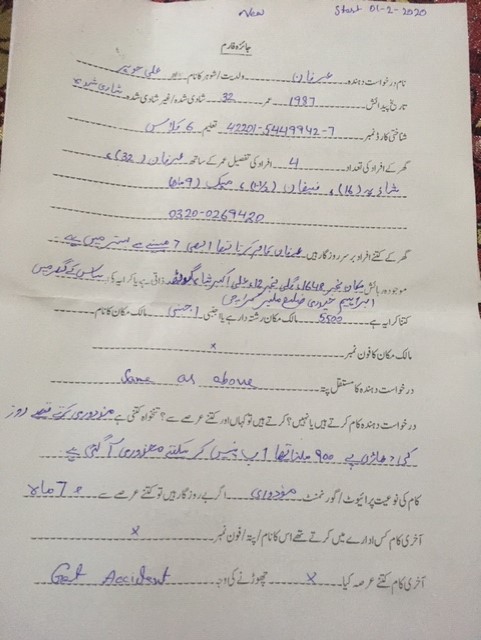 New Start 01-2-2020
جائزہ فارم
نام درخواست دہندہ عرفان ولدیت/شوہر کا نام علی
تاریخ پیدائش 1987 عمر 32 شادی شدہ/غیر شادی شدہ شادی شدہ
شناختی کارڈ نمبر 42201-5449942-7 تعلیم 6 کلاس
گھر کے افراد کی تعداد 4 افراد کی تفصیل عمر کے ساتھ عرفان (32)،
(16)، (9 ماہ)
0320-0269420
گھر کے کتنے افراد برسر روزگار ہیں عرفان کام کرتا تھا ابھی 7 مہینے سے بستر میں ہے
موجودہ رہائش مکان نمبر 1640 گلی نمبر 12 علی اکبر شاہ گوٹھ ذاتی ہے یا کرایہ کی
ابراہیم حیدری ضلع ملیر کراچی
کتنا کرایہ ہے 5500 مالک مکان رشتہ دار ہے یا اجنبی اجنبی مالک مکان کا نام
مالک مکان کا فون نمبر x
درخواست دہندہ کا مستقل پتہ Same as above
درخواست دہندہ کام کرتے ہیں یا نہیں؟ کرتے ہیں تو کہاں اور کتنے عرصے سے؟ تنخواہ کتنی ہے مزدوری کرتے تھے روز
کی دھاڑی 900 ملتا تھا اب نہیں کر سکتے معزوری آ گئی ہے
کام کی نوعیت پرائیوٹ/گورنمنٹ مزدوری اگر بے روزگار ہیں تو کتنے عرصے سے 7 ماہ
آخری کام کس ادارے میں کرتے تھے اس کا نام/پتہ/فون نمبر x
آخری کام کتنے عرصہ کیا x چھوڑنے کی وجہ Get Accident